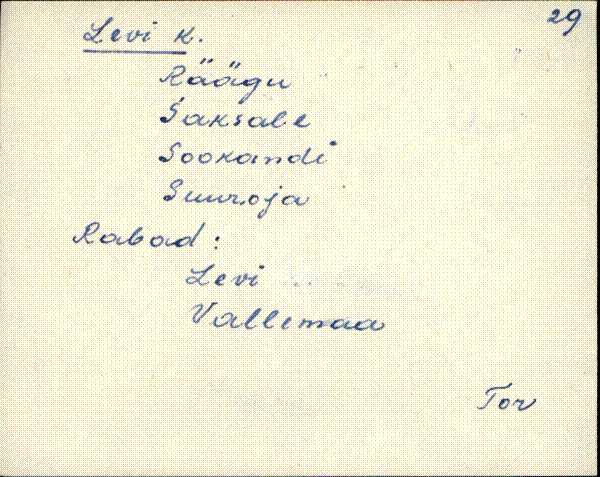 29
Levi k.
Räägu
Saksale
Sookandi
Suuroja
Rabad:
Levi
Vallimaa
Tor